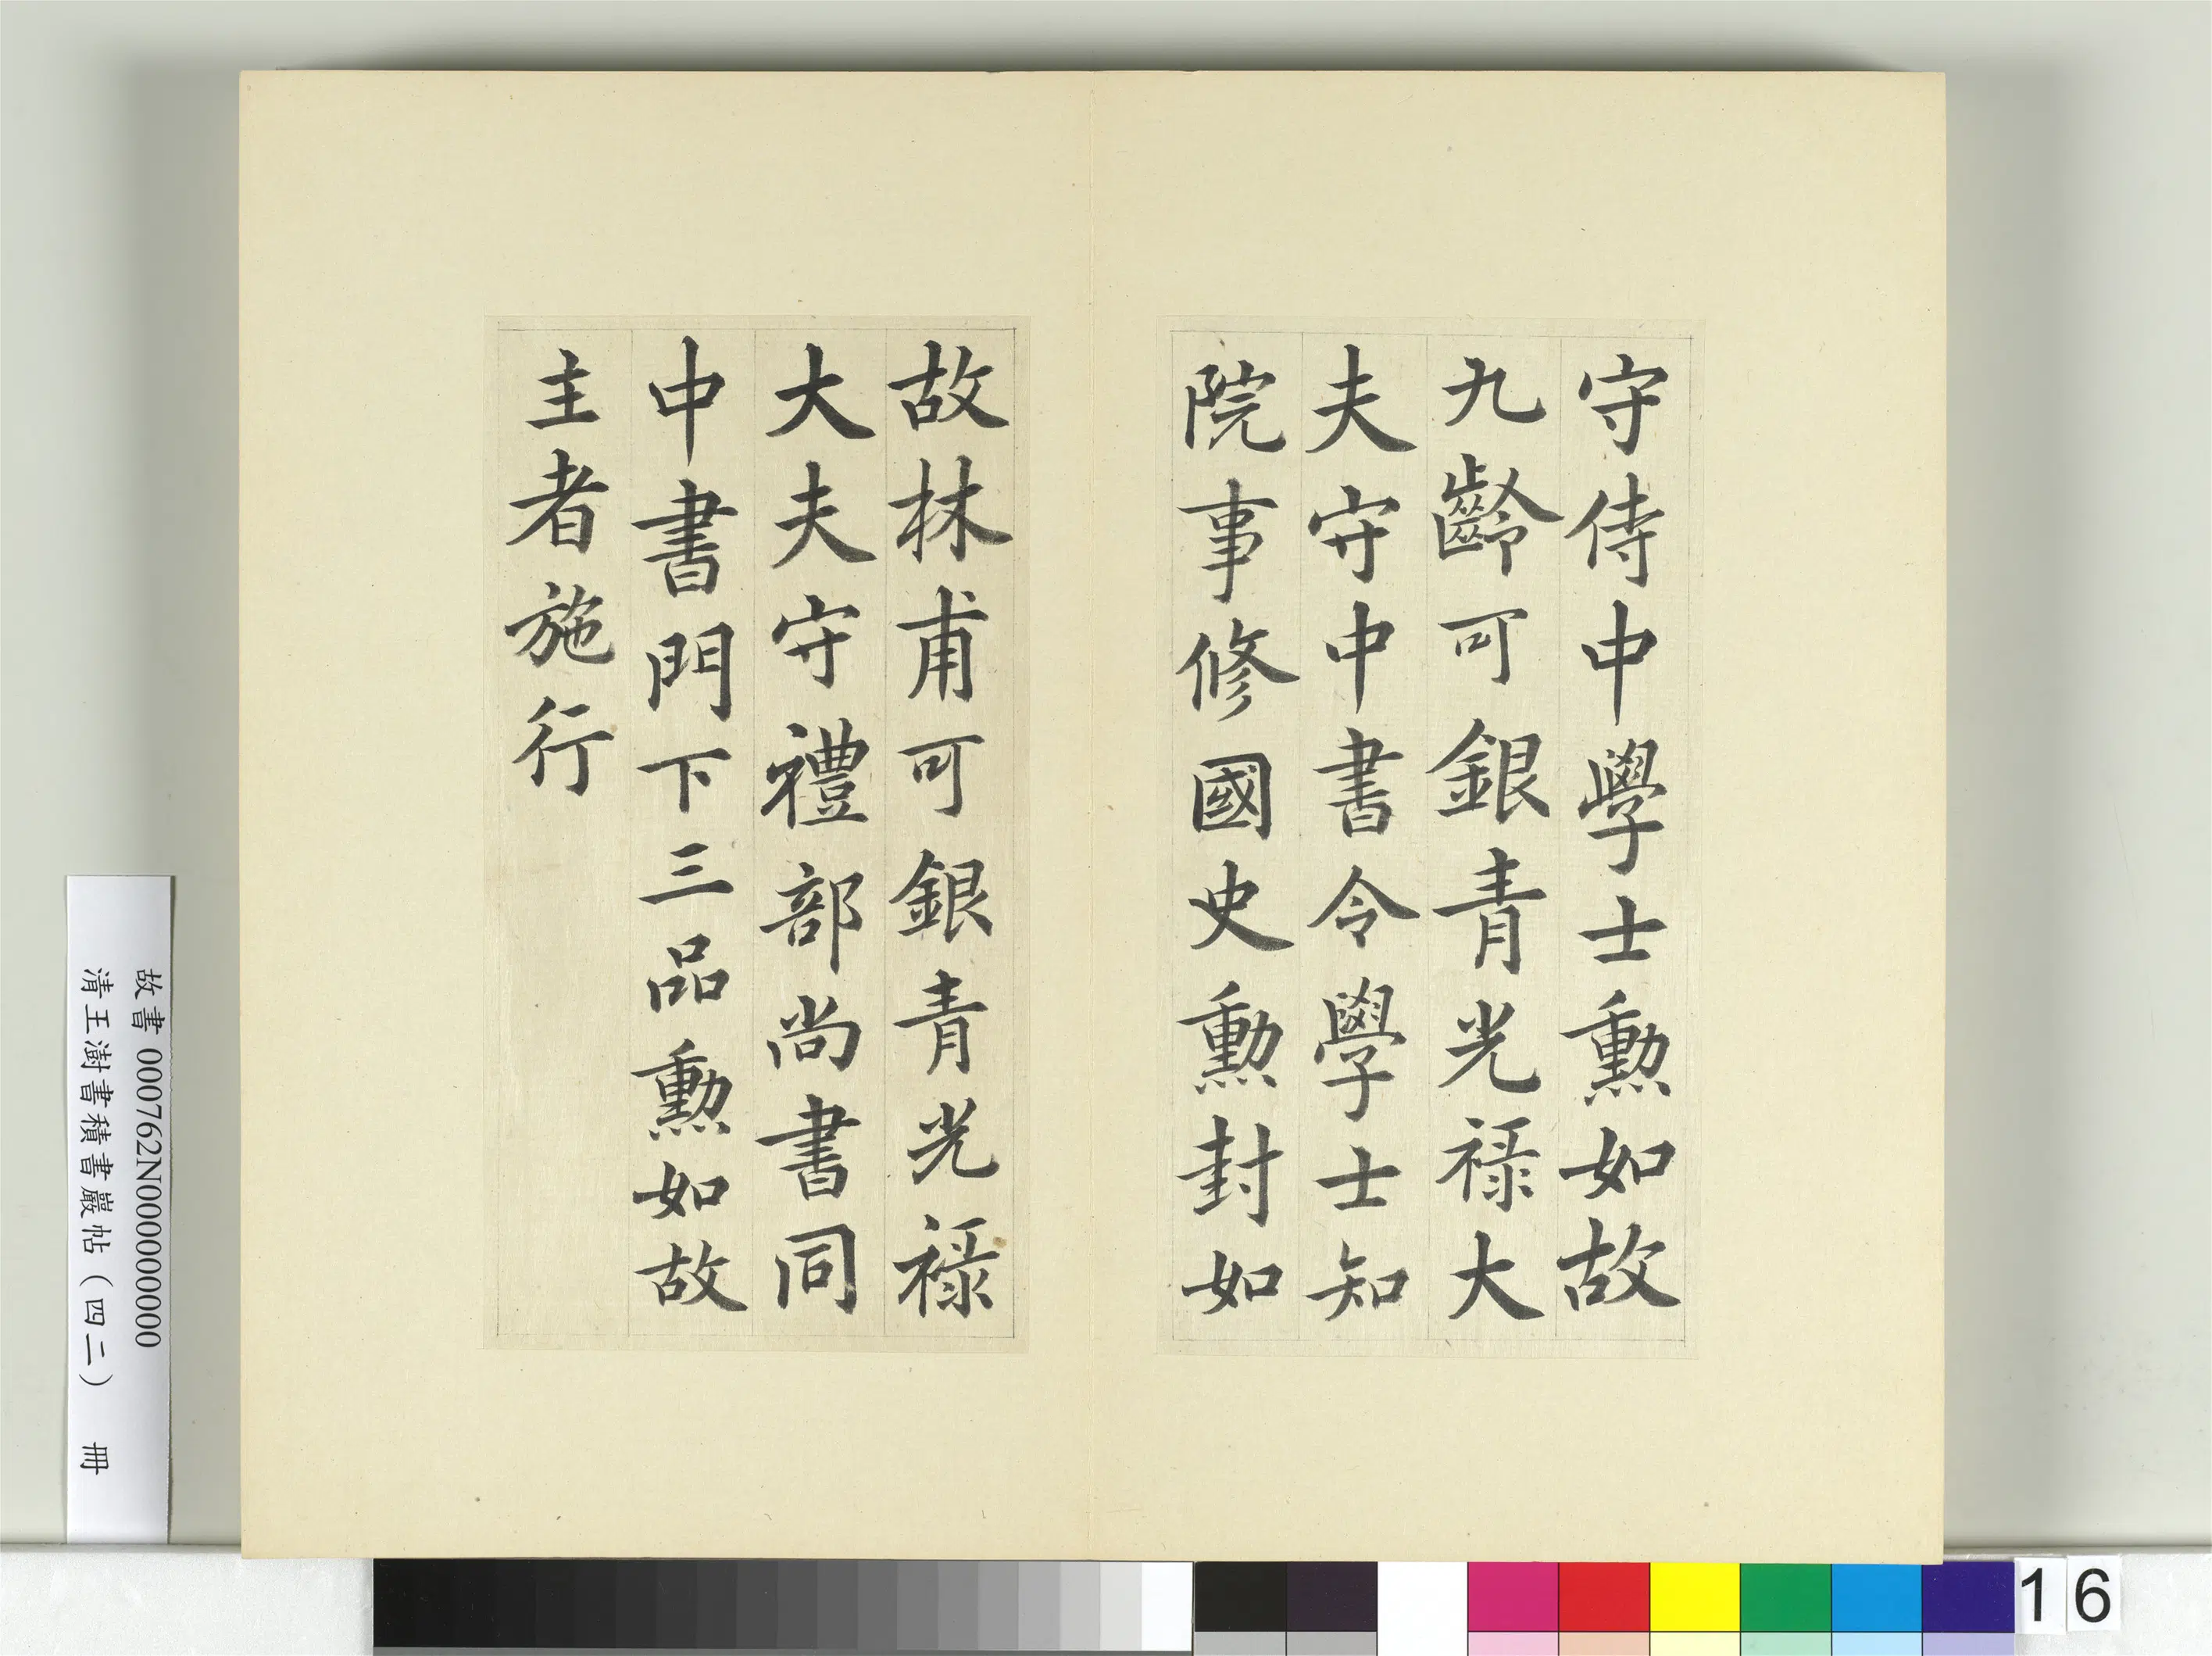 守侍中學士勲如故
九齡可銀青光祿大
夫守中書令學士知
院事修國史勲封如
故林甫可銀青光祿
大夫守禮部尚書同
中書門下三品勲如故
主者施行
故書 000762N000000000
清王澍書積書巖帖(四二) 冊
16